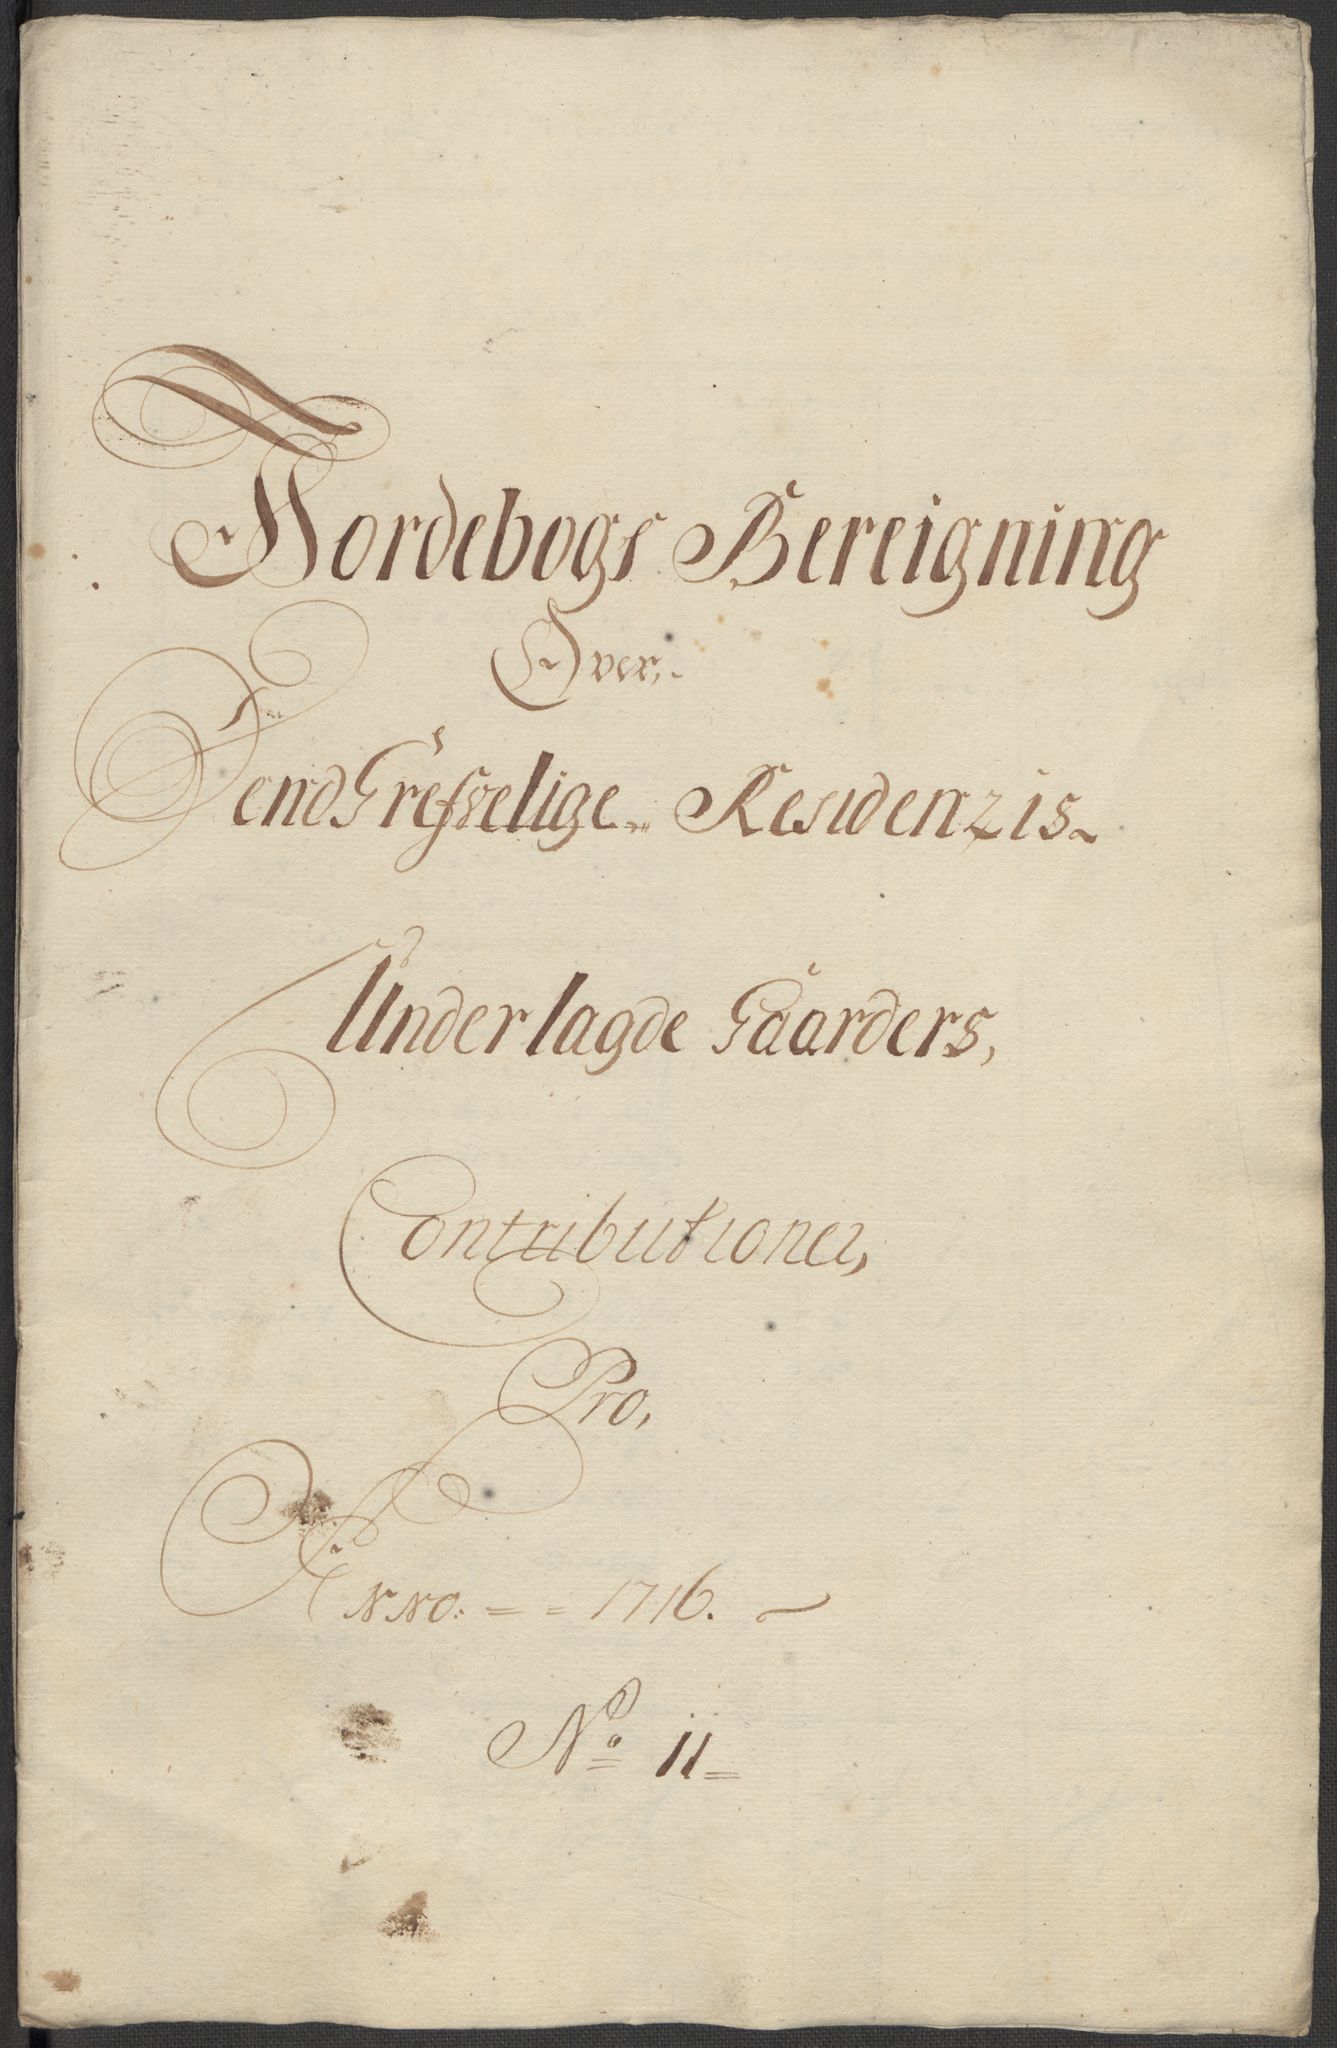 Jordebogs Bereigning
Over,
Dend Grefvelige Residenzis
Underlagde Gaarders,
Contributioner,
Pro,
Anno: = = 1716.
No 11